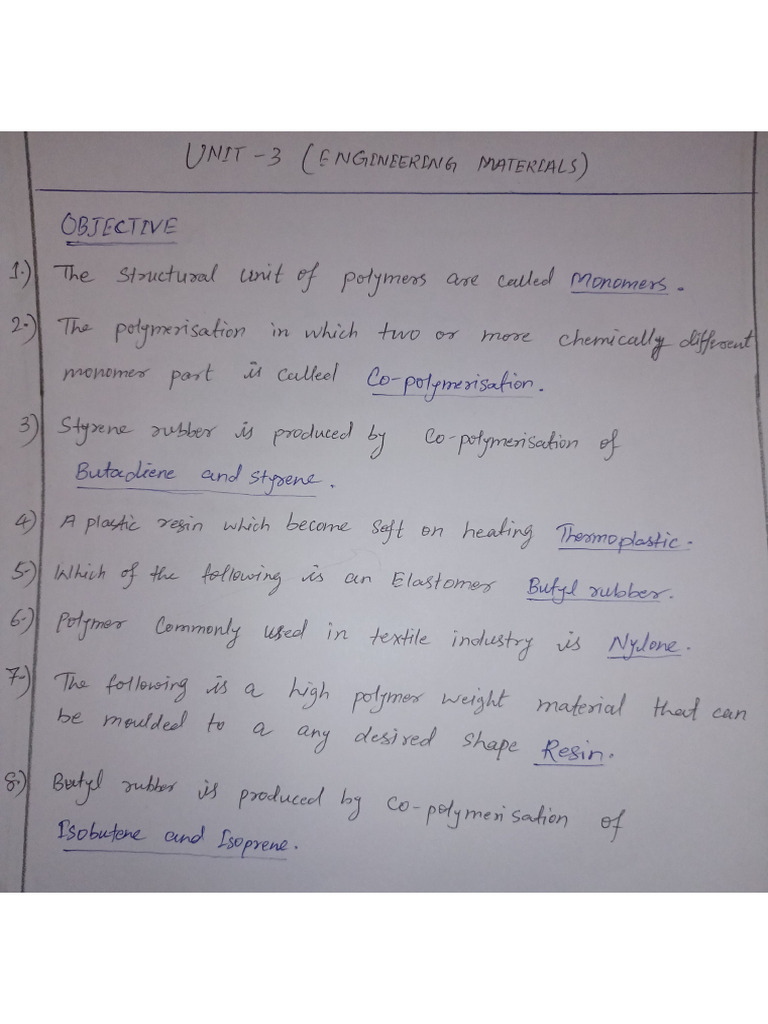 UNIT - 3 (ENGINEERING MATERIALS)
OBJECTIVE
1.) The structural unit of polymers are called Monomers.
2.) The polymerisation in which two or more chemically different
monomer part is called Co-polymerisation.
3) Styrene rubber is produced by Co-polymerisation of
Butadiene and Styrene.
4) A plastic resin which become soft on heating Thermoplastic.
5.) Which of the following is an Elastomer Butyl rubber.
6.) Polymer Commonly used in textile industry is Nylone.
7.) The following is a high polymer weight material that can
be moulded to a any desired shape Resin.
8.) Butyl rubber is produced by co-polymerisation of
Isobutene and Isoprene.